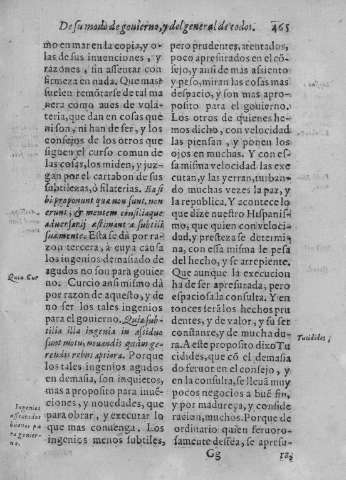 De su modo de gouierno, y del general de todos. 465
mo en mar en la copia, y o-
las de sus inuenciones, y
razones, sin assentar ca-
si nunca en nada Que mas
suelen remōtarse de tal ma
nera como aues de volate-
ria, que dan en cosas que
ni son, ni han de ser, y los
consejos de los otros que
siguen el curso comun de
las cosas, los miden, y juz-
gan por el cartabon de sus
subtilezas, ò filaterias. Ea si
bi proponunt quæ non sunt, non
erunt, & mentem consiliaque
aduersarij æstimant à subtili
suamente. Esta se dà por ra-
zon tercera, à cuya causa
los ingenios demasiado de
agudos no son para gouier
no. Curcio ansi mismo dà
por razon de aquesto, y de
no ser los tales ingenios
para el gouierno, Quia sub-
tilia illa ingenia in assiduo
sunt motu, mouendis quàm ge-
rendis rebus aptiora. Porque
los tales ingenios agudos
en demasia, son inquietos,
mas a proposito para inuē-
ciones, y nouedades, que
para obrar, y executar lo
que mas conuenga. Los
ingenios menos subtiles,
Quin. Cur
Ingenios
assentados
buenos pa
ra gouier-
no.
pero prudentes, atentados,
poco apresurados en el cō-
sejo, y ansi de mas assiento
y peso, miran las cosas mas
de espacio, y son mas apro-
posito para el gouierno.
Los otros de quienes he-
mos dicho, con velocidad
las piensan, y ponen los
ojos en muchas. Y con es-
sa misma velocidad las exe
cutan, y las yerran, turban-
do muchas vezes la paz, y
la republica. Y acontece lo
que dize nuestro Hispanis-
mo, que quien con veloci-
dad, y presteza se determi-
na, con essa misma le pesa
del hecho, y se arrepiente.
Que aunque la execucion
ha de ser apresurada, pero
espaciosa la consulta. Y en-
tonces serà los hechos pru
dentes, y de valor, y su ser
constante, y de mucha du-
ra. A este proposito dixo Tu
cidides, que cō el demasia
do feruor en el consejo, y
en la consulta, se lleuā muy
pocos negocios a buē fin,
y por madureza, y conside
racion, muchos. Porque de
ordinario quien feruoro-
samente dessea, se apresu-
Tucidides,
Gg